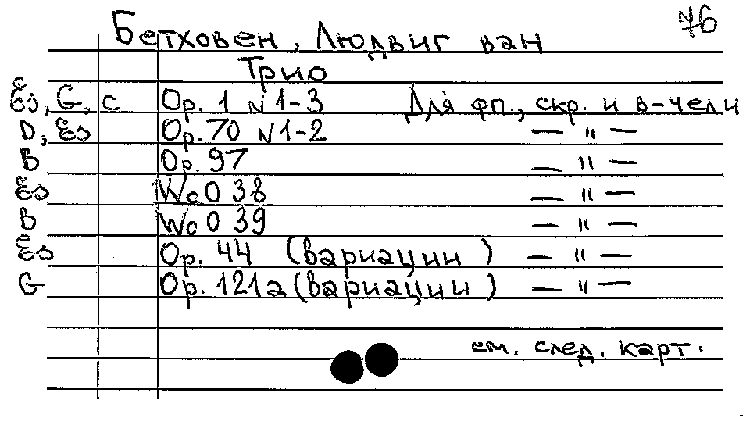 76
Бетховен, Людвиг ван
Трио
Es, G, c Op. 1 N 1-3 Для фп., скр. и в-чели
D, Es Op. 70 N 1-2 — " —
B Op. 97 — " —
Es WoO 38 — " —
B WoO 39 — " —
Es Op. 44 (вариации) — " —
G Op. 121a (вариации) — " —
см. след. карт.